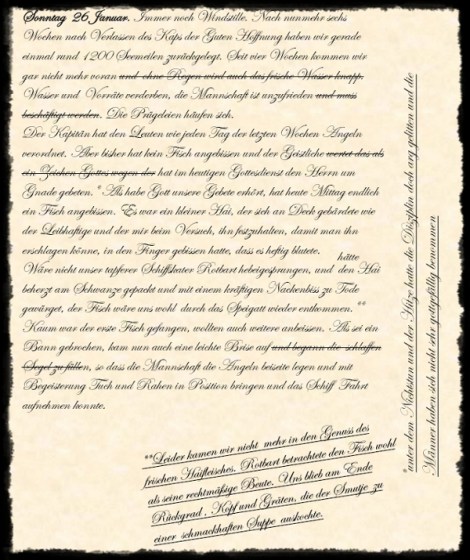 Sonntag 26 Januar. Immer noch Windstille. Nach nunmehr sechs
Wochen nach Verlassen des Kaps der Guten Hoffnung haben wir gerade
einmal rund 1200 Seemeilen zurückgelegt. Seit vier Wochen kommen wir
gar nicht mehr voran und ohne Regen wird auch das frische Wasser knapp.
Wasser und Vorräte verderben, die Mannschaft ist unzufrieden und muss
beschäftigt werden. Die Prügeleien häufen sich.
Der Kapitän hat den Leuten wie jeden Tag der letzten Wochen Angeln
verordnet. Aber bisher hat kein Fisch angebissen und der Geistliche wertet das als
ein Zeichen Gottes wegen der hat im heutigen Gottesdienst den Herrn um
Gnade gebeten. * Als habe Gott unsere Gebete erhört, hat heute Mittag endlich
ein Fisch angebissen. Es war ein kleiner Hai, der sich an Deck gebärdete wie
der Leibhaftige und der mir beim Versuch, ihn festzuhalten, damit man ihn
erschlagen könne, in den Finger gebissen hatte, dass es heftig blutete.
hätte
Wäre nicht unser tapferer Schiffskater Rotbart herbeigesprungen, und den Hai
beherzt am Schwanze gepackt und mit einem kräftigen Nackenbiss zu Tode
gewürget, der Fisch wäre uns wohl durch das Speigatt wieder entkommen. **
Kaum war der erste Fisch gefangen, wollten auch weitere anbeissen. Als sei ein
Bann gebrochen, kam nun auch eine leichte Brise auf und begann die schlaffen
Segel zu füllen, so dass die Mannschaft die Angeln beiseite legen und mit
Begeisterung Tuch und Rahen in Position bringen und das Schiff Fahrt
aufnehmen konnte.
**Leider kamen wir nicht mehr in den Genuss des
frischen Haifleisches. Rotbart betrachtete den Fisch wohl
als seine rechtmäßige Beute. Uns blieb am Ende
Rückgrad, Kopf und Gräten, die der Smutje zu
einer schmackhaften Suppe auskochte.
*unter dem Nichtstun und der Hitze hatte die Disziplin doch arg gelitten und die
Männer haben sich nicht sehr gottgefällig benommen